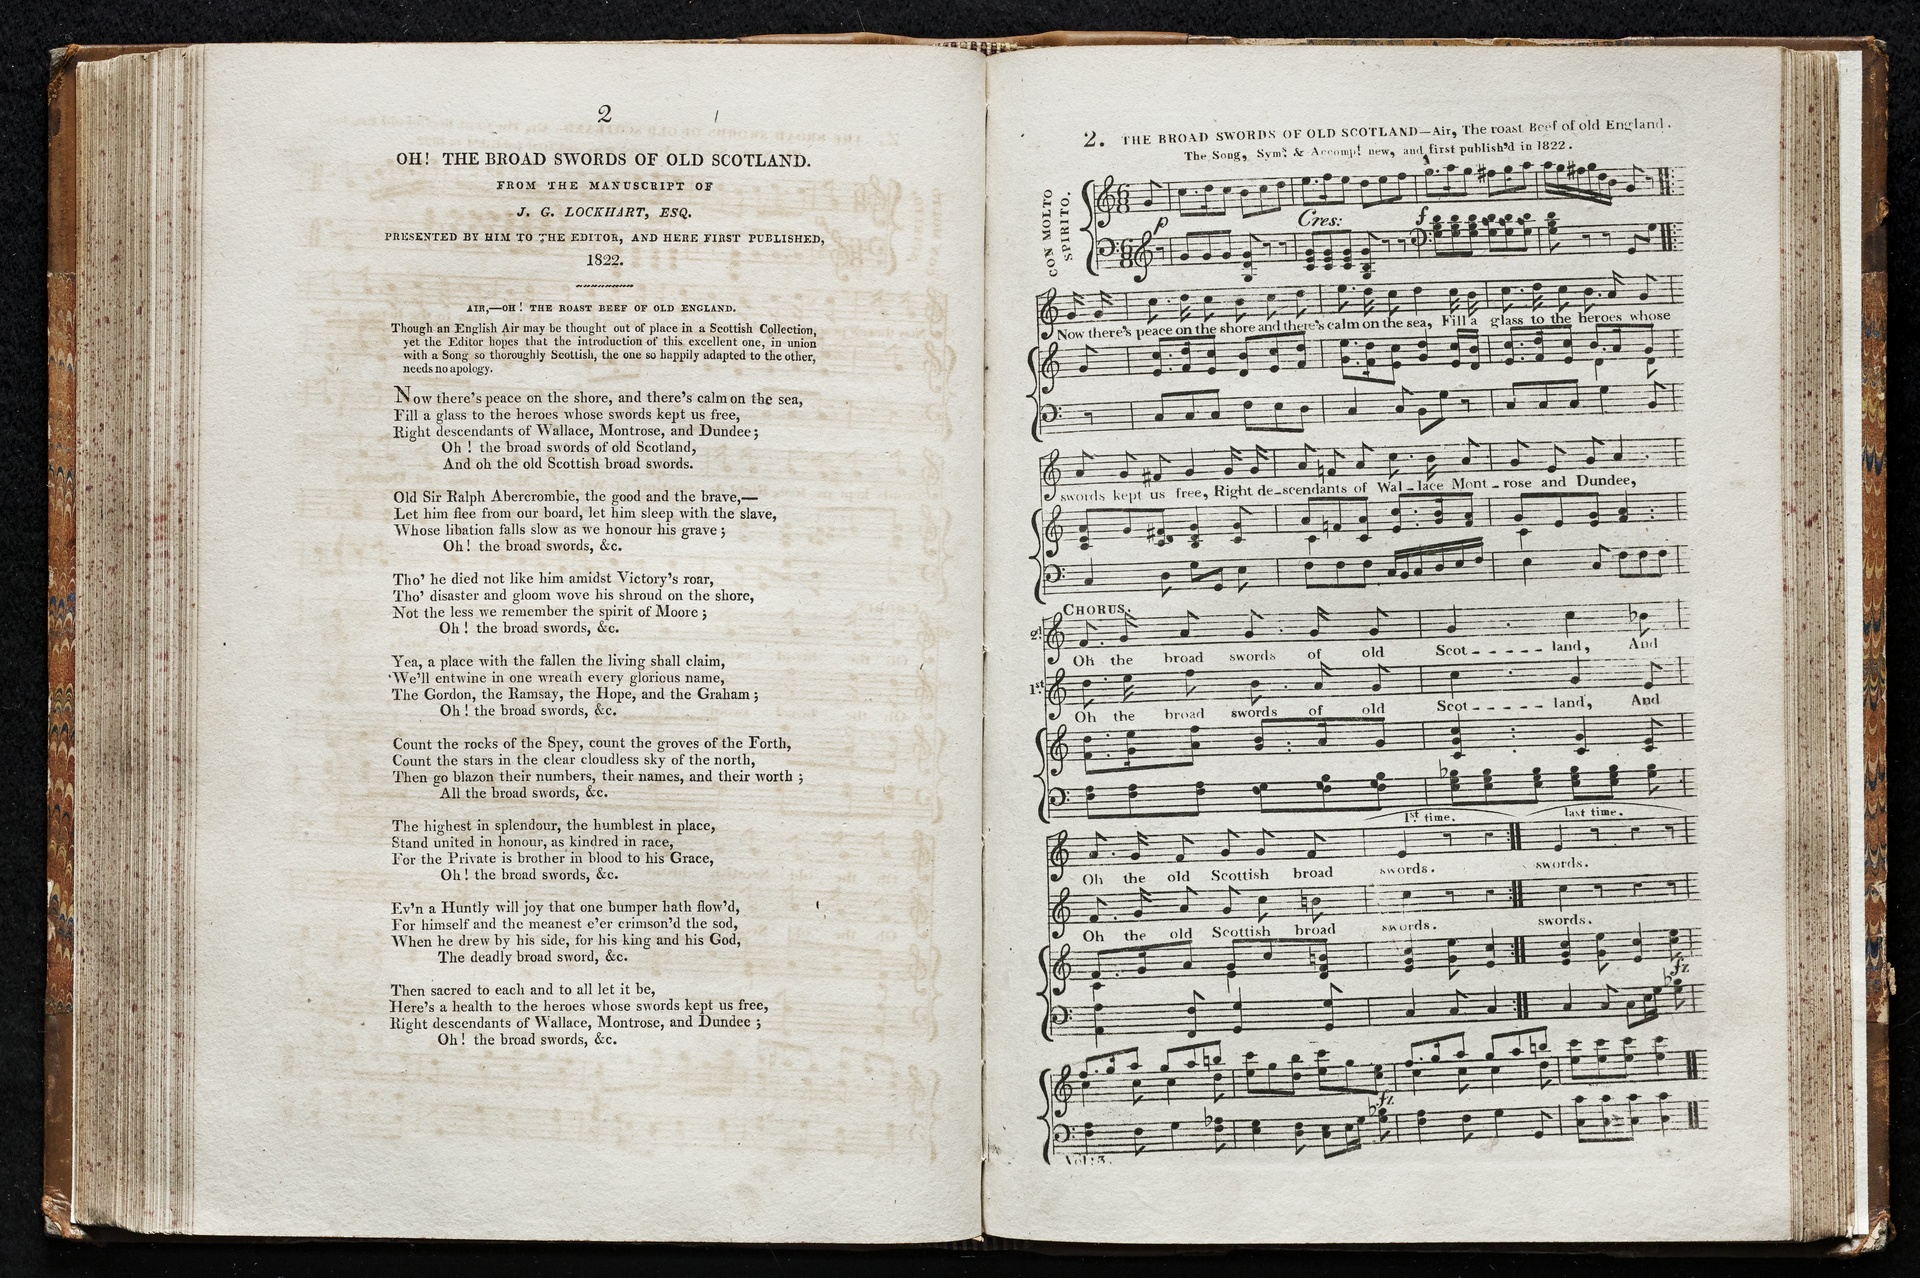 2
OH! THE BROAD SWORDS OF OLD SCOTLAND.
FROM THE MANUSCRIPT OF
J. G. LOCKHART, ESQ.
PRESENTED BY HIM TO THE EDITOR, AND HERE FIRST PUBLISHED,
1822.
AIR,—OH! THE ROAST BEEF OF OLD ENGLAND.
Though an English Air may be thought out of place in a Scottish Collection,
yet the Editor hopes that the introduction of this excellent one, in union
with a Song so thoroughly Scottish, the one so happily adapted to the other,
needs no apology.
Now there's peace on the shore, and there's calm on the sea,
Fill a glass to the heroes whose swords kept us free,
Right descendants of Wallace, Montrose, and Dundee;
Oh! the broad swords of old Scotland,
And oh the old Scottish broad swords.
Old Sir Ralph Abercrombie, the good and the brave,—
Let him flee from our board, let him sleep with the slave,
Whose libation falls slow as we honour his grave;
Oh! the broad swords, &c.
Tho' he died not like him amidst Victory's roar,
Tho' disaster and gloom wove his shroud on the shore,
Not the less we remember the spirit of Moore;
Oh! the broad swords, &c.
Yea, a place with the fallen the living shall claim,
We'll entwine in one wreath every glorious name,
The Gordon, the Ramsay, the Hope, and the Graham;
Oh! the broad swords, &c.
Count the rocks of the Spey, count the groves of the Forth,
Count the stars in the clear cloudless sky of the north,
Then go blazon their numbers, their names, and their worth;
All the broad swords, &c.
The highest in splendour, the humblest in place,
Stand united in honour, as kindred in race,
For the Private is brother in blood to his Grace,
Oh! the broad swords, &c.
Ev'n a Huntly will joy that one bumper hath flow'd,
For himself and the meanest e'er crimson'd the sod,
When he drew by his side, for his king and his God,
The deadly broad sword, &c.
Then sacred to each and to all let it be,
Here's a health to the heroes whose swords kept us free,
Right descendants of Wallace, Montrose, and Dundee;
Oh! the broad swords, &c.
2. THE BROAD SWORDS OF OLD SCOTLAND—Air, The roast Beef of old England.
The Song, Sym? & Accomp! new, and first publish'd in 1822.
CON MOLTO
SPIRITO.
p Cres: f
Now there's peace on the shore and there's calm on the sea, Fill a glass to the heroes whose
swords kept us free, Right de-scendants of Wal-lace Mont-rose and Dundee,
CHORUS.
2d
Oh the broad swords of old Scot-----land, And
1st
Oh the broad swords of old Scot-----land, And
1st time. last time.
Oh the old Scottish broad swords. swords.
Oh the old Scottish broad swords. swords.
fz
fz
Vol: 3.